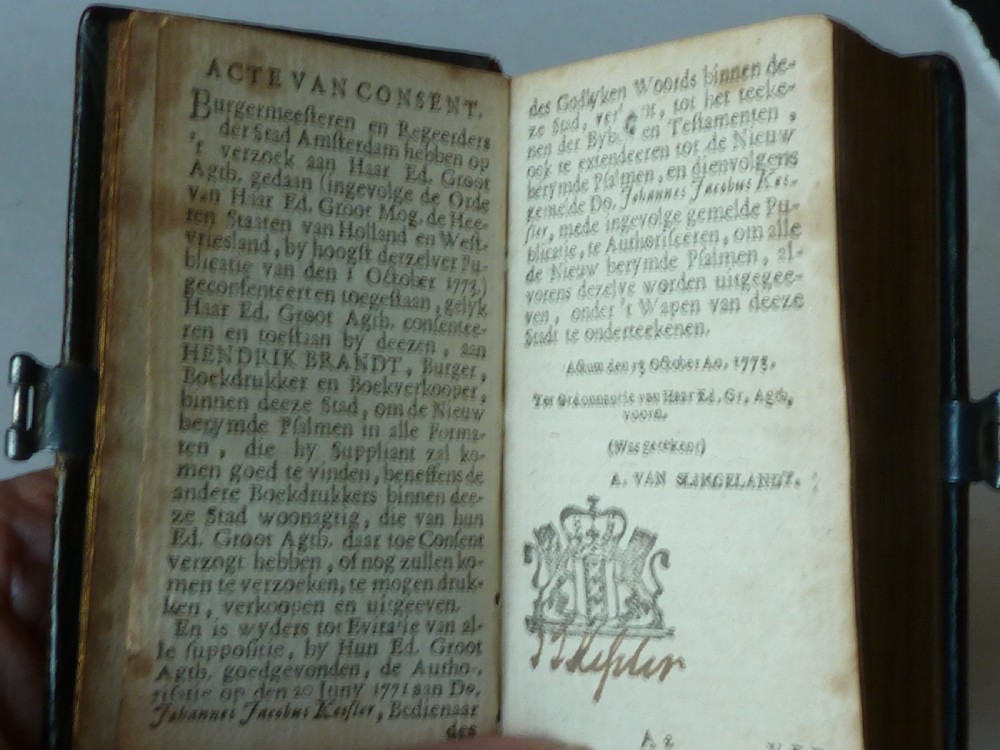 ACTE VAN CONSENT.
Burgermeeſteren en Regeerders
der Stad Amſterdam hebben op
't verzoek aan Haar Ed. Groot
Agtb. gedaan (ingevolge de Orde
van Haar Ed. Groot Mog. de Hee-
ren Staaten van Holland en Weſt-
vriesland, by hoogſt derzelver Pu-
blicatie van den 1 October 1773,)
geconſenteert en toegeſtaan, gelyk
Haar Ed. Groot Agtb. conſentee-
ren en toeſtaan by deezen, aan
HENDRIK BRANDT, Burger,
Boekdrukker en Boekverkooper,
binnen deeze Stad, om de Nieuw
berymde Pſalmen in alle Forma-
ten, die hy Suppliant zal ko-
men goed te vinden, beneffens de
andere Boekdrukkers binnen dee-
ze Stad woonagtig, die van hun
Ed. Groot Agtb. daar toe Conſent
verzogt hebben, of nog zullen ko-
men te verzoeken, te mogen druk-
ken, verkoopen en uitgeeven.
En is wyders tot Evitatie van al-
le ſuppoſitie, by Hun Ed. Groot
Agtb. goedgevonden, de Autho-
riſatie op den 20 Juny 1771 aan Do.
Johannes Jacobus Keſſler, Bedienaar
des
des Godlyken Woords binnen de-
ze Stad, tot het teeke-
nen der en Teſtamenten,
ook te extendeeren tot de Nieuw
berymde Pſalmen, en dienvolgens
gemelde Do. Johannes Jacobus Kes-
ſler, mede ingevolge gemelde Pu-
blicatie, te Authoriſeeren, om alle
de Nieuw berymde Pſalmen, al-
vorens dezelve worden uitgegee-
ven, onder 't Wapen van deeze
Stadt te onderteekenen.
Actum den 13 October Ao. 1773.
Ter Ordonnantie van Haar Ed. Gr. Agtb.
voorn.
(Was getekent)
A. VAN SLINGELANDT.
JJ Kesſler
A 2